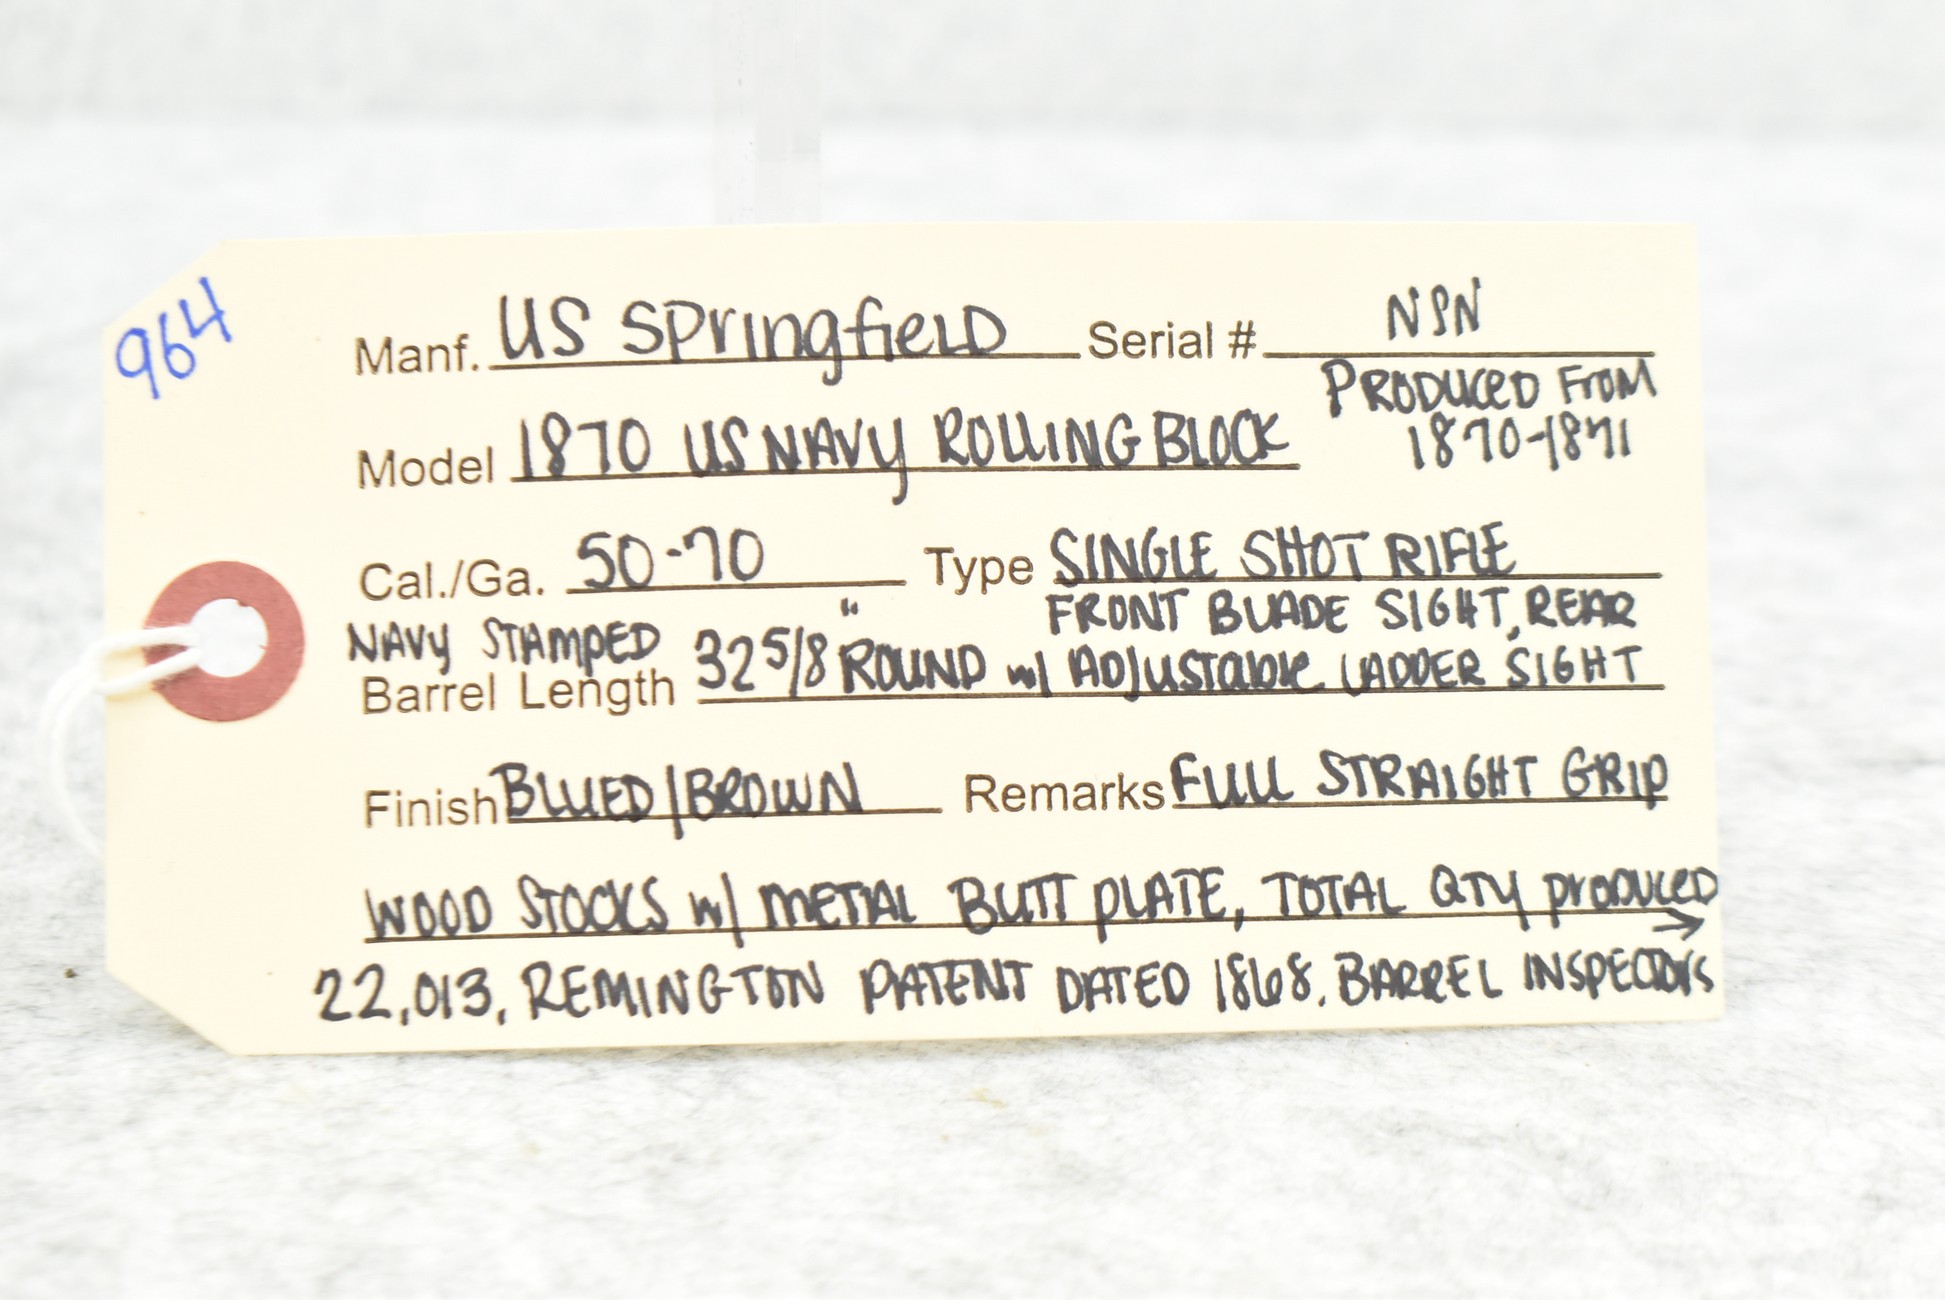 964
Manf. US Springfield Serial # NSN
PRODUCED FROM
Model 1870 US NAVY ROLLING BLOCK 1870-1871
Cal./Ga. 50-70 Type SINGLE SHOT RIFLE
NAVY STAMPED FRONT BLADE SIGHT, REAR
Barrel Length 32 5/8" ROUND w/ ADJUSTABLE LADDER SIGHT
Finish BLUED/BROWN Remarks FULL STRAIGHT GRIP
WOOD STOCKS w/ METAL BUTT PLATE, TOTAL QTY PRODUCED →
22,013, REMINGTON PATENT DATED 1868. BARREL INSPECTORS